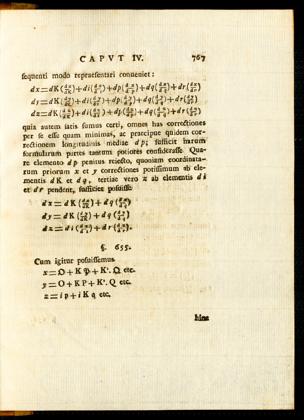 CAPVT IV. 767
sequenti modo repraesentari conueniet:
dx=dK(dx/dK)+di(dx/di)+dp(dx/dp)+dq(dx/dq)+dr(dx/dr)
dy=dK(dy/dK)+di(dy/di)+dp(dy/dp)+dq(dy/dq)+dr(dy/dr)
dz=dK(dz/dK)+di(dz/di)+dp(dz/dp)+dq(dz/dq)+dr(dz/dr)
quia autem satis sumus certi, omnes has correctiones
per se esse quam minimas, ac praecipue quidem cor-
rectionem longitudinis mediae dp; sufficit harum
formularum partes tantum potiores considerasse. Qua-
re elemento dp penitus reiecto, quoniam coordinata-
rum priorum x et y correctiones potissimum ab ele-
mentis dK et dq, tertiae vero z ab elementis di
et dr pendent, sufficiet posuisse
dx=dK(dx/dK)+dq(dx/dq)
dy=dK(dy/dK)+dq(dy/dq)
dz=di(dz/di)+dr(dz/dr).
§. 655.
Cum igitur posuissemus
x=𝔒+K𝔓+K².𝔔 etc.
y=O+KP+K².Q etc.
z=ip+iKq etc.
hinc